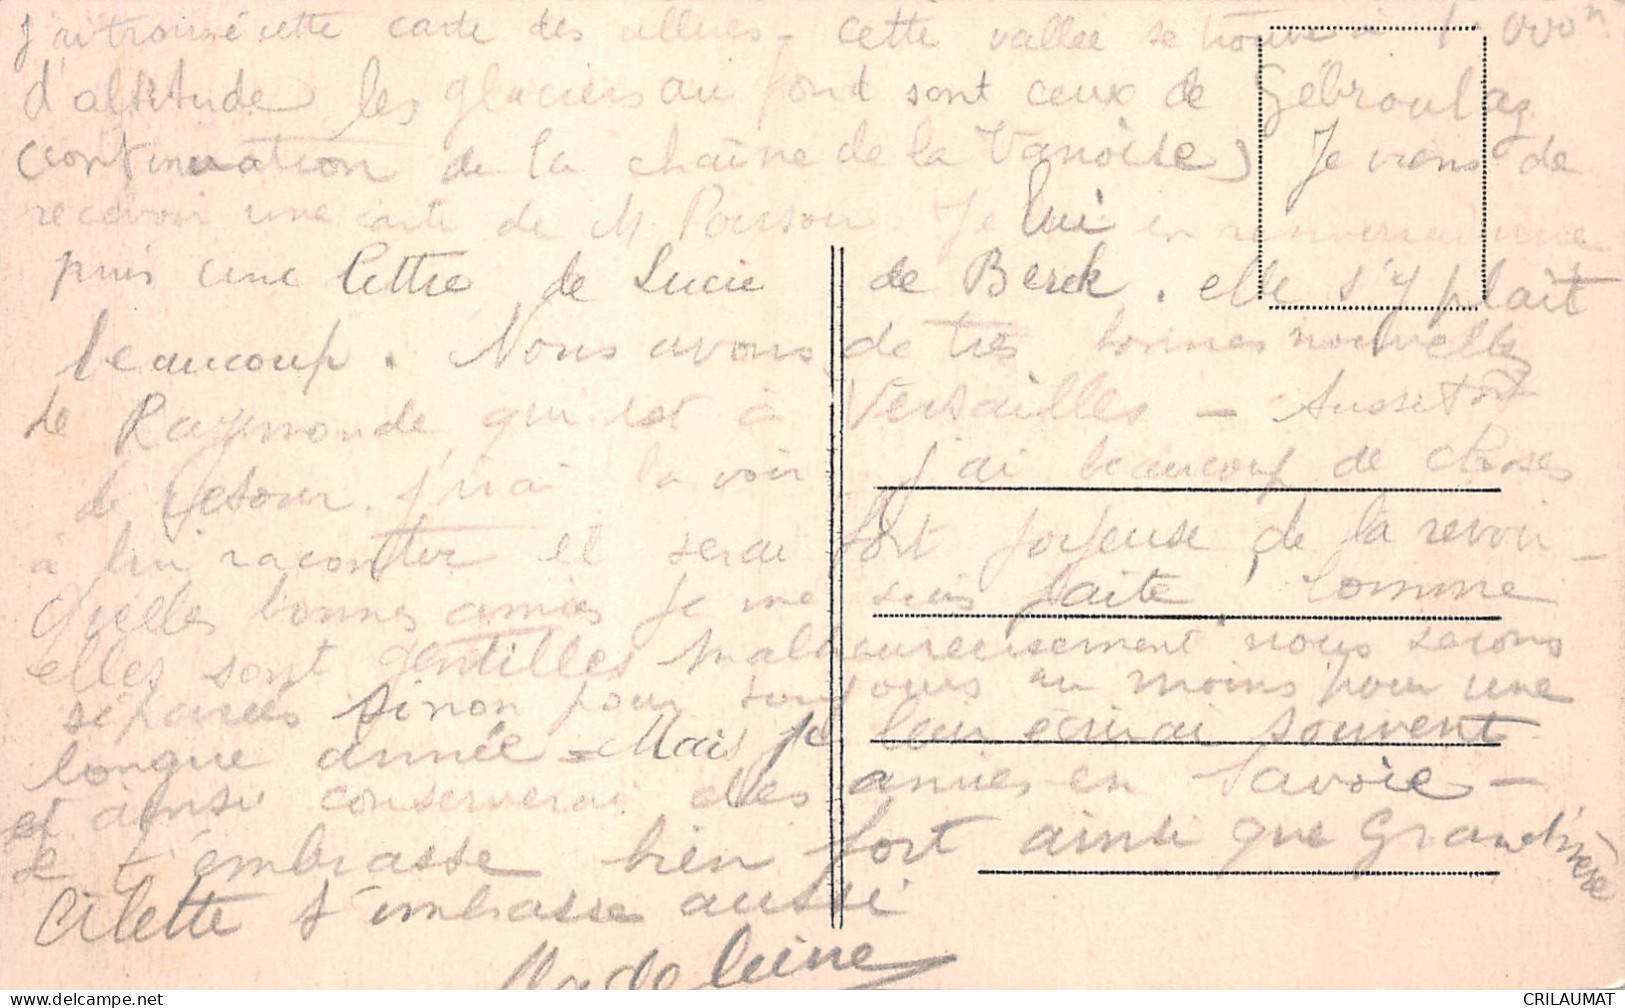 J'ai trouvé cette carte des allues - Cette vallée se trouve à
d'altitude les glaciers au fond sont ceux de Gébroulaz
continuation de la chaîne de la Vanoise) Je viens de
recevoir une carte de M. Poisson. Je lui en renverrai une
puis une lettre de Lucie de Berck. elle s'y plaît
beaucoup. Nous avons de très bonnes nouvelles
de Raymonde qui est à Versailles - Aussitôt
de retour j'irai la voir j'ai beaucoup de choses
à lui raconter et serai fort joyeuse de la revoir -
Quelles bonnes amies je me suis faite, comme
elles sont gentilles malheureusement nous serons
séparées sinon pour toujours au moins pour une
longue année = Mais je leur écrirai souvent
et ainsi conserverai des amies en Savoie -
Je t'embrasse bien fort ainsi que Grand'mère
t'embrasse aussi
Madeleine
CRILAUMAT